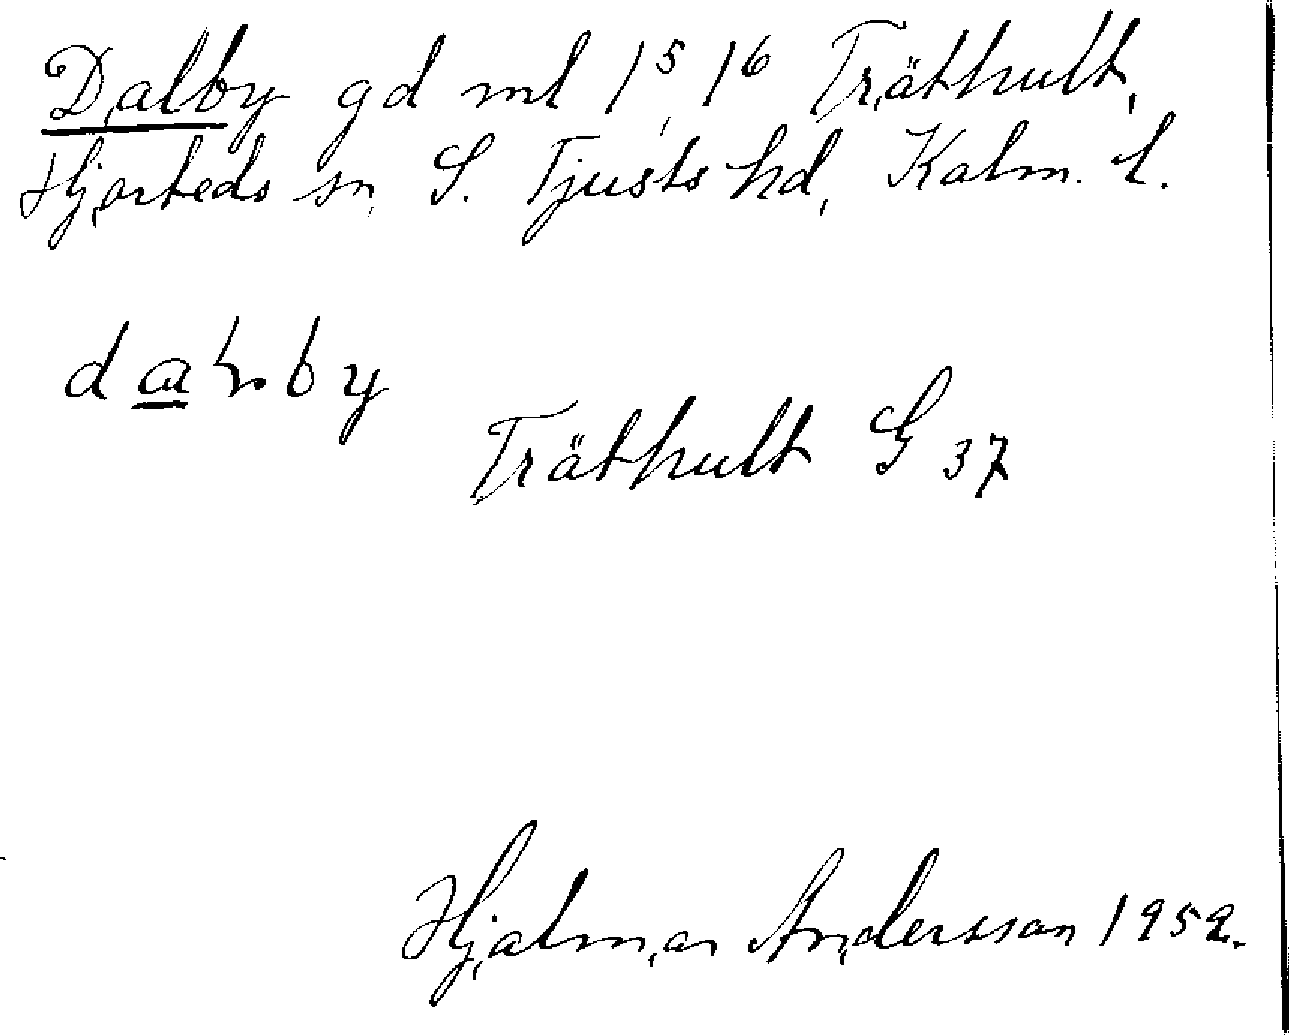 Dalby gd ml 1⁵, 1⁶ Träthult,
Hjorteds sn, S. Tjusts hd, Kalm. l.
by
Träthult G 37
Hjalmar Andersson 1952.